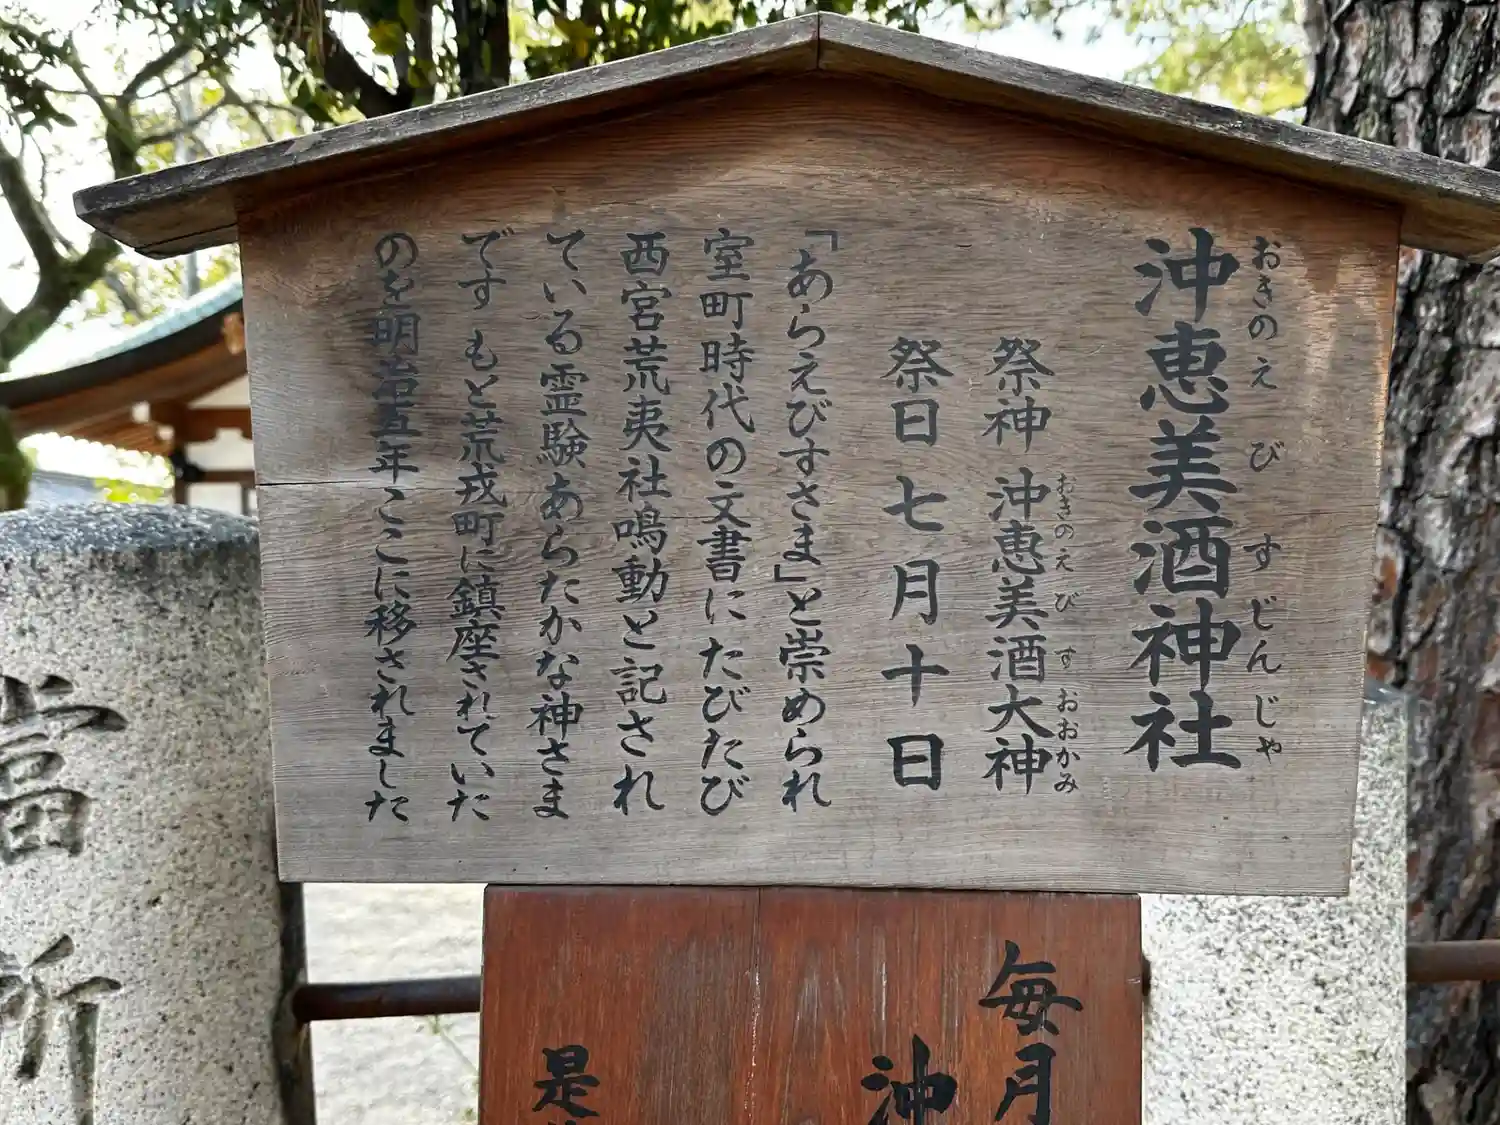 沖恵美酒神社
おきのえびすじんじゃ
祭神 沖恵美酒大神
おきのえびすおおかみ
祭日 七月十日
「あらえびすさま」と崇められ
室町時代の文書にたびたび
西宮荒夷社鳴動と記され
ている霊験あらたかな神さま
です もと荒戎町に鎮座されていた
のを明治五年ここに移されました
毎月
沖
是
當所